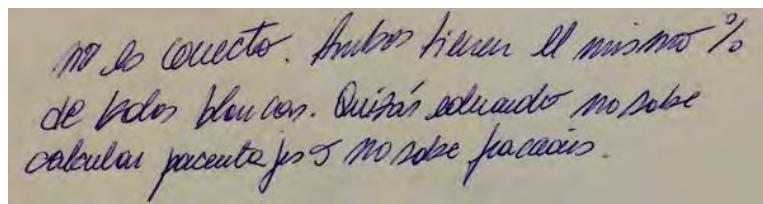 no es correcto. Ambos tienen el mismo %
de bolas blancas. Quizás eduardo no sabe
calcular porcentajes o no sabe fracciones.